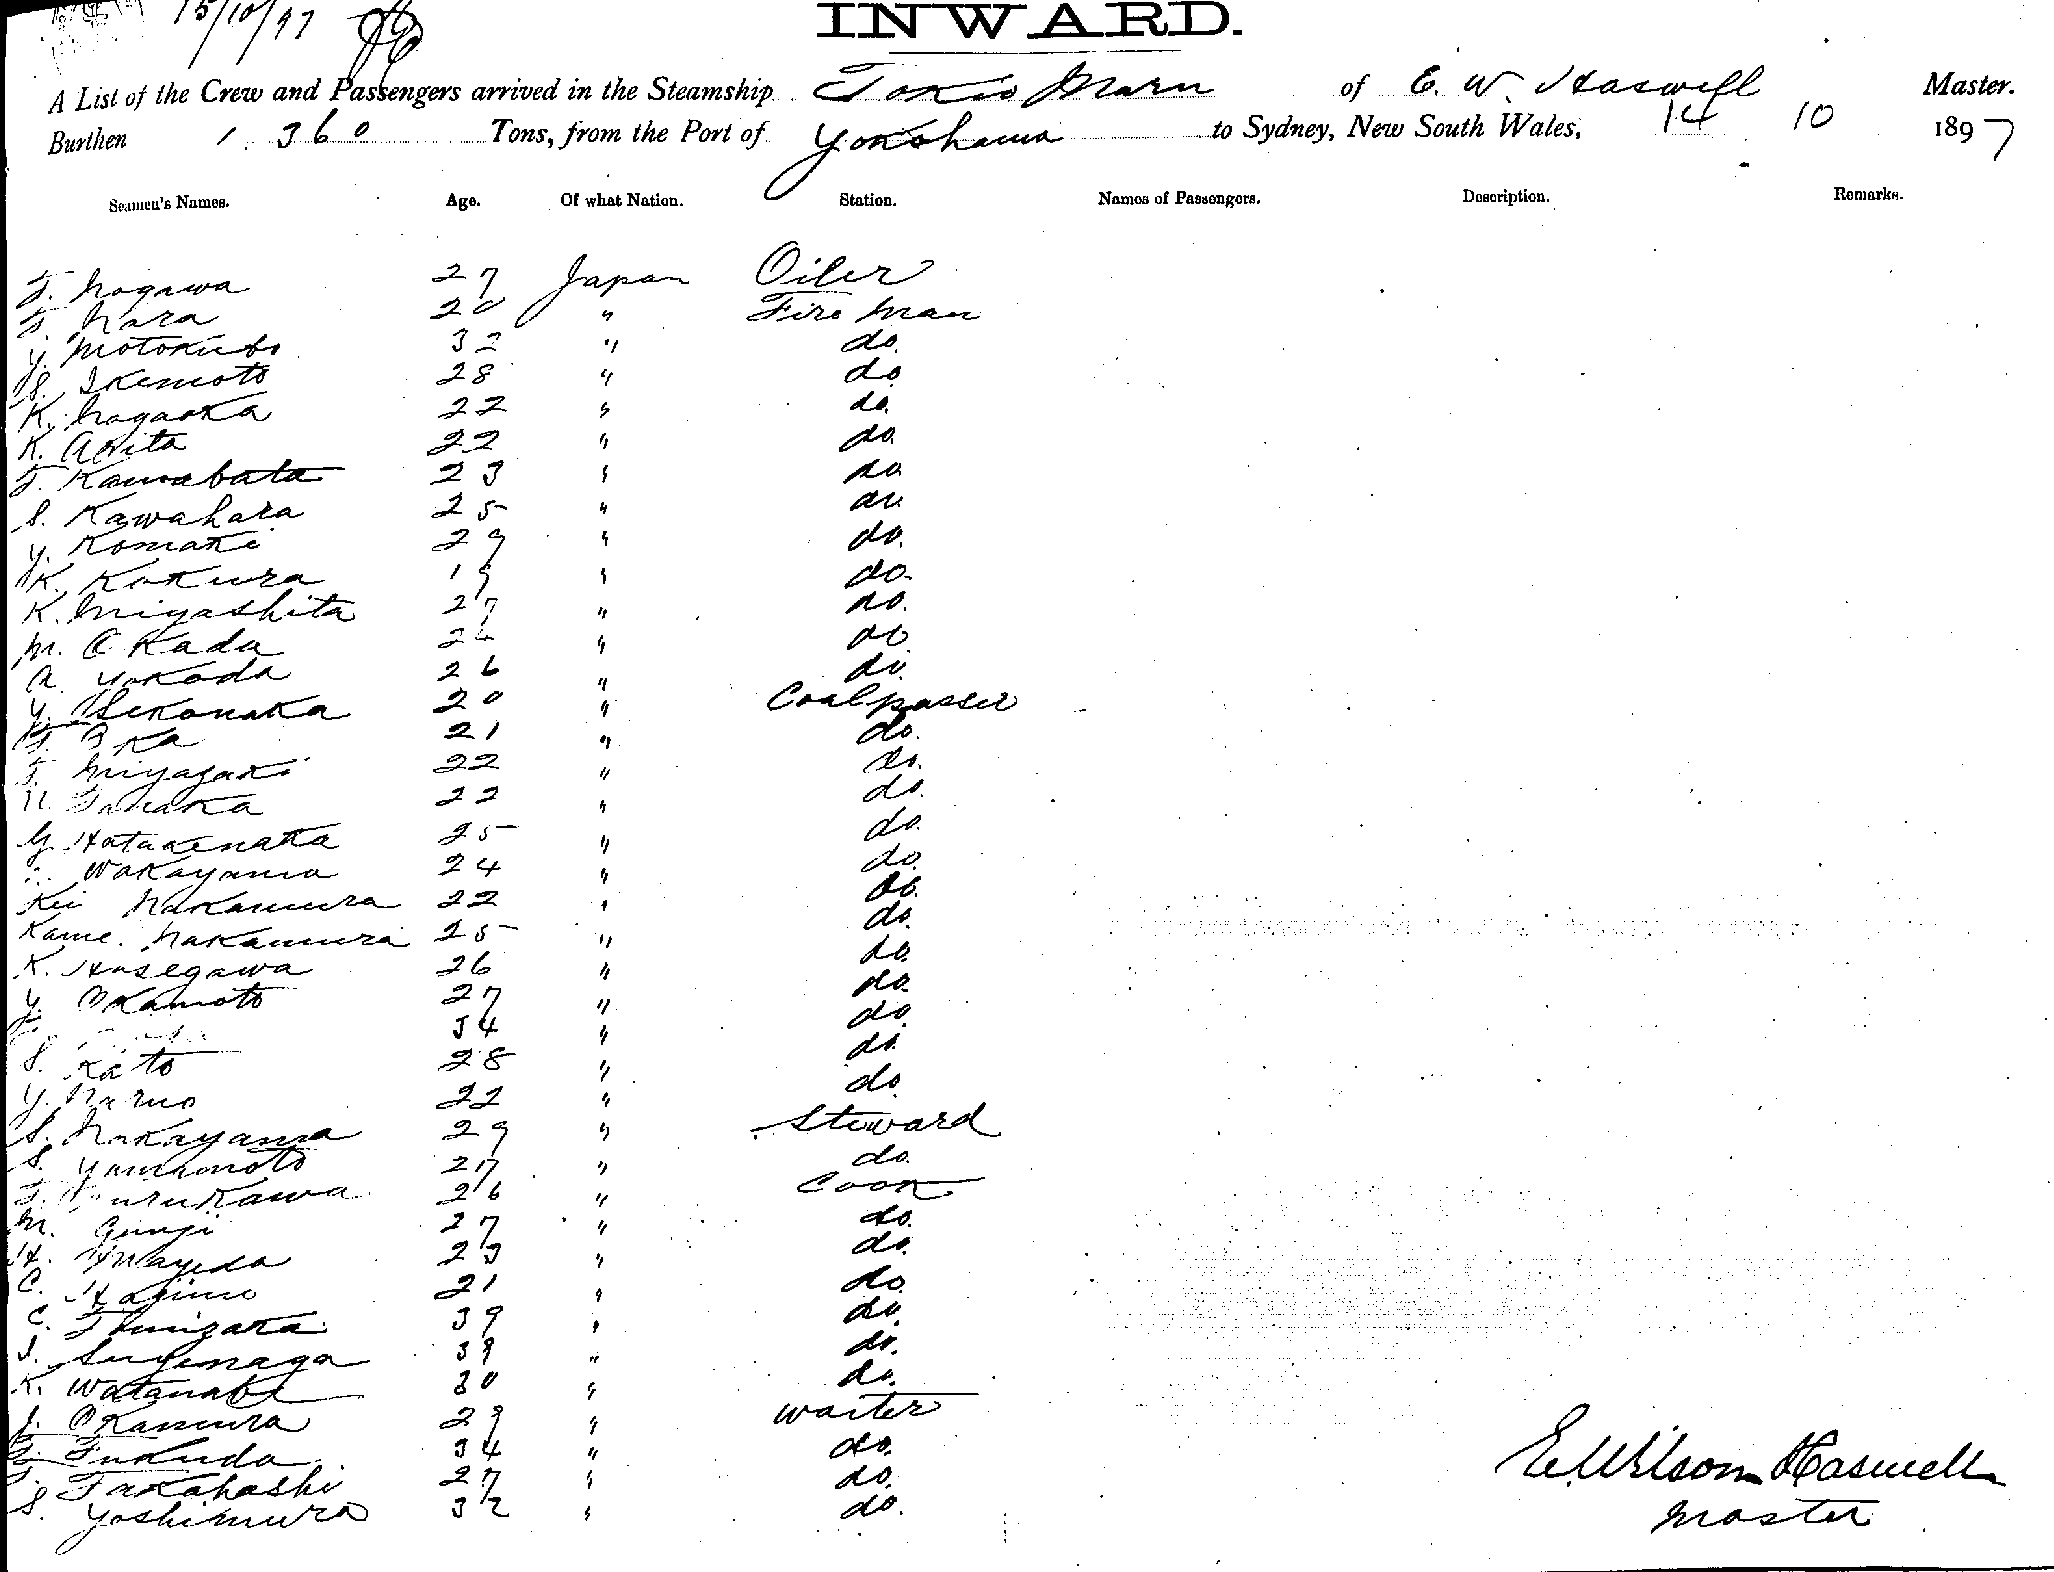 15/10/97
INWARD.
A List of the Crew and Passengers arrived in the Steamship Tokio Maru of E. W. Haswell Master.
Burthen 1.360 Tons, from the Port of Yokohama to Sydney, New South Wales, 14 10 1897
Seamen's Names. Age. Of what Nation. Station. Names of Passengers. Description. Remarks.
T. Nogawa 27 Japan Oiler
T. Nara 20 " Fire man
Y. Motokubo 32 " do.
S. Ikemoto 28 " do
K. Nagaoka 22 " do.
K. Arita 22 " do.
T. Kawabata 23 " do
S. Kawahara 25 " do.
Y. Komaki 29 " do.
K. Kokura 19 " do.
K. Miyashita 27 " do.
M. Okada 24 " do
A. Yokoda 26 " do.
Y. 20 " Coalpasser
T. Oka 21 " do.
T. Miyazaki 22 " do.
Tanaka 22 " do.
G. Hatakenaka 25 " do.
Wakayama 24 " do.
Kei Nakamura 22 " do.
Kame. Nakamura 25 " do.
K. Hasegawa 26 " do.
Y. Okamoto 27 " do.
34 " do.
S. Kato 28 " do.
Y. Naruo 22 " do.
S. Nakayama 29 " Steward
S. Yamamoto 27 " do.
T. Furukawa 26 " Cook
M. Gunji 27 " do.
H. Mayeda 23 " do.
C. Hajime 21 " do.
C. 39 " do.
S. Suyenaga 39 " do.
K. Watanabe 30 " do.
J. Okamura 29 " waiter
Fukuda 34 " do.
T. Takahashi 27 " do.
S. Yoshimura 32 " do.
E. Wilson Haswell
Master